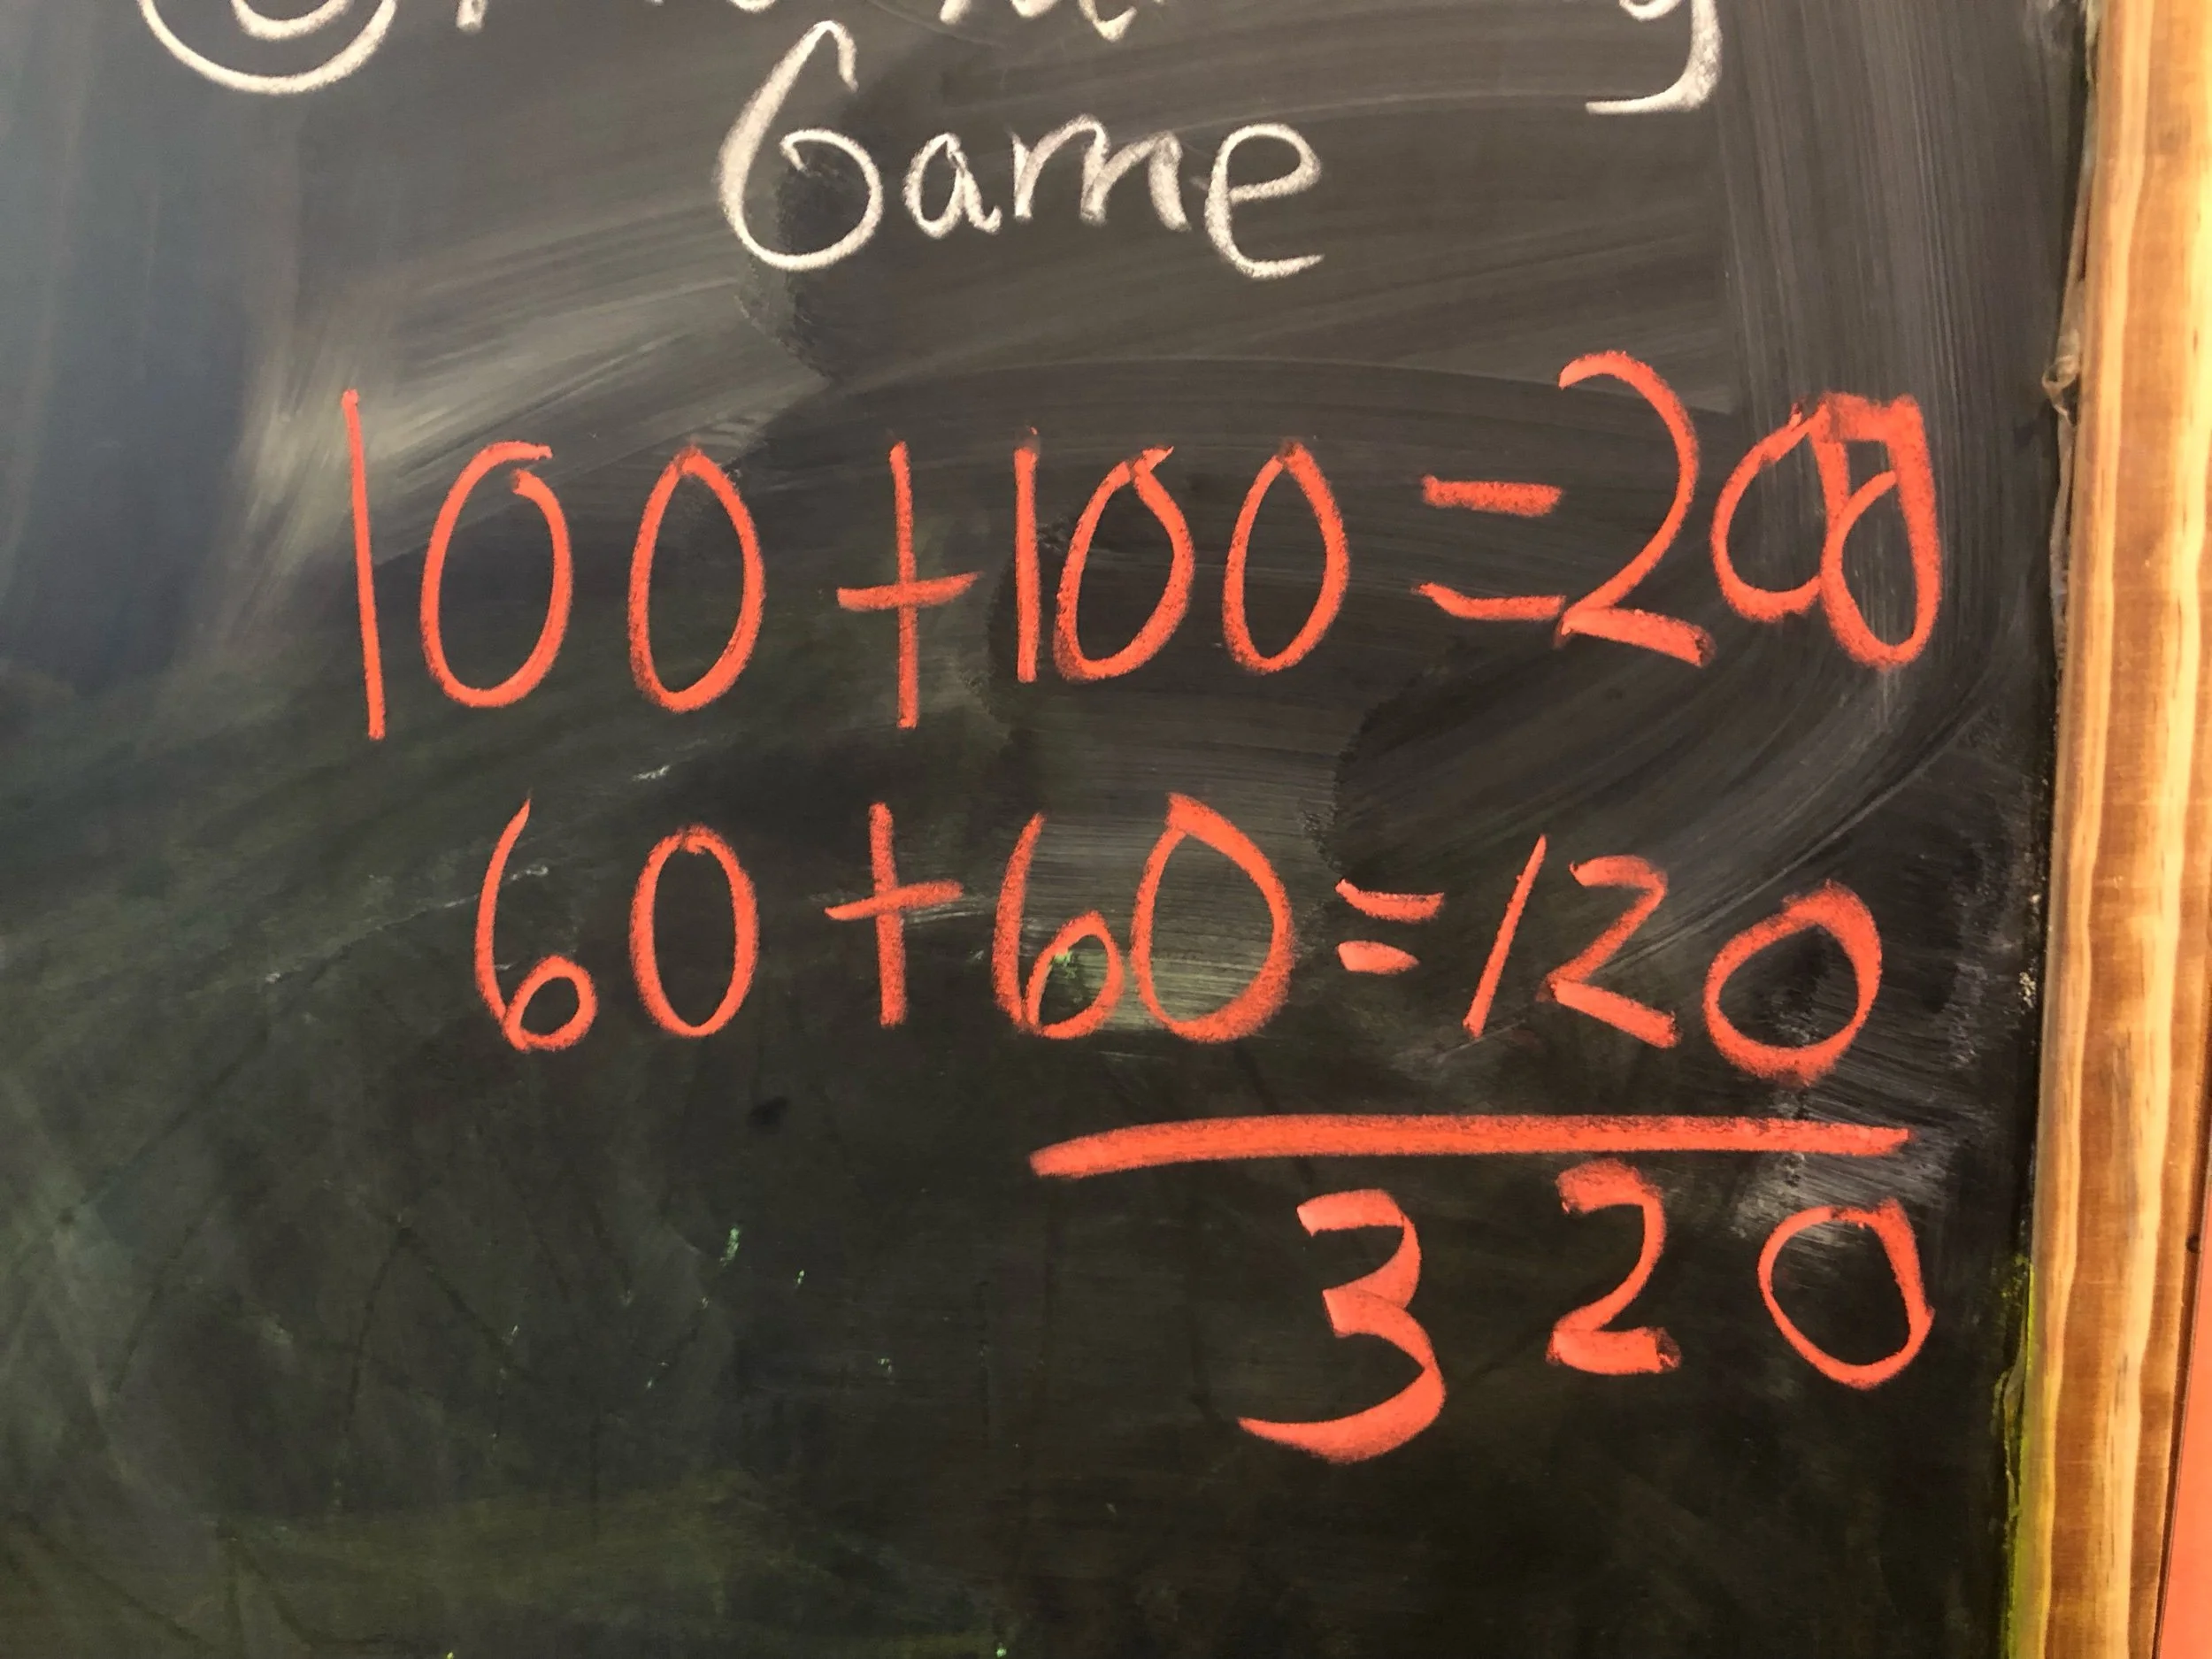 Game
100+100=200
60+60=120
320